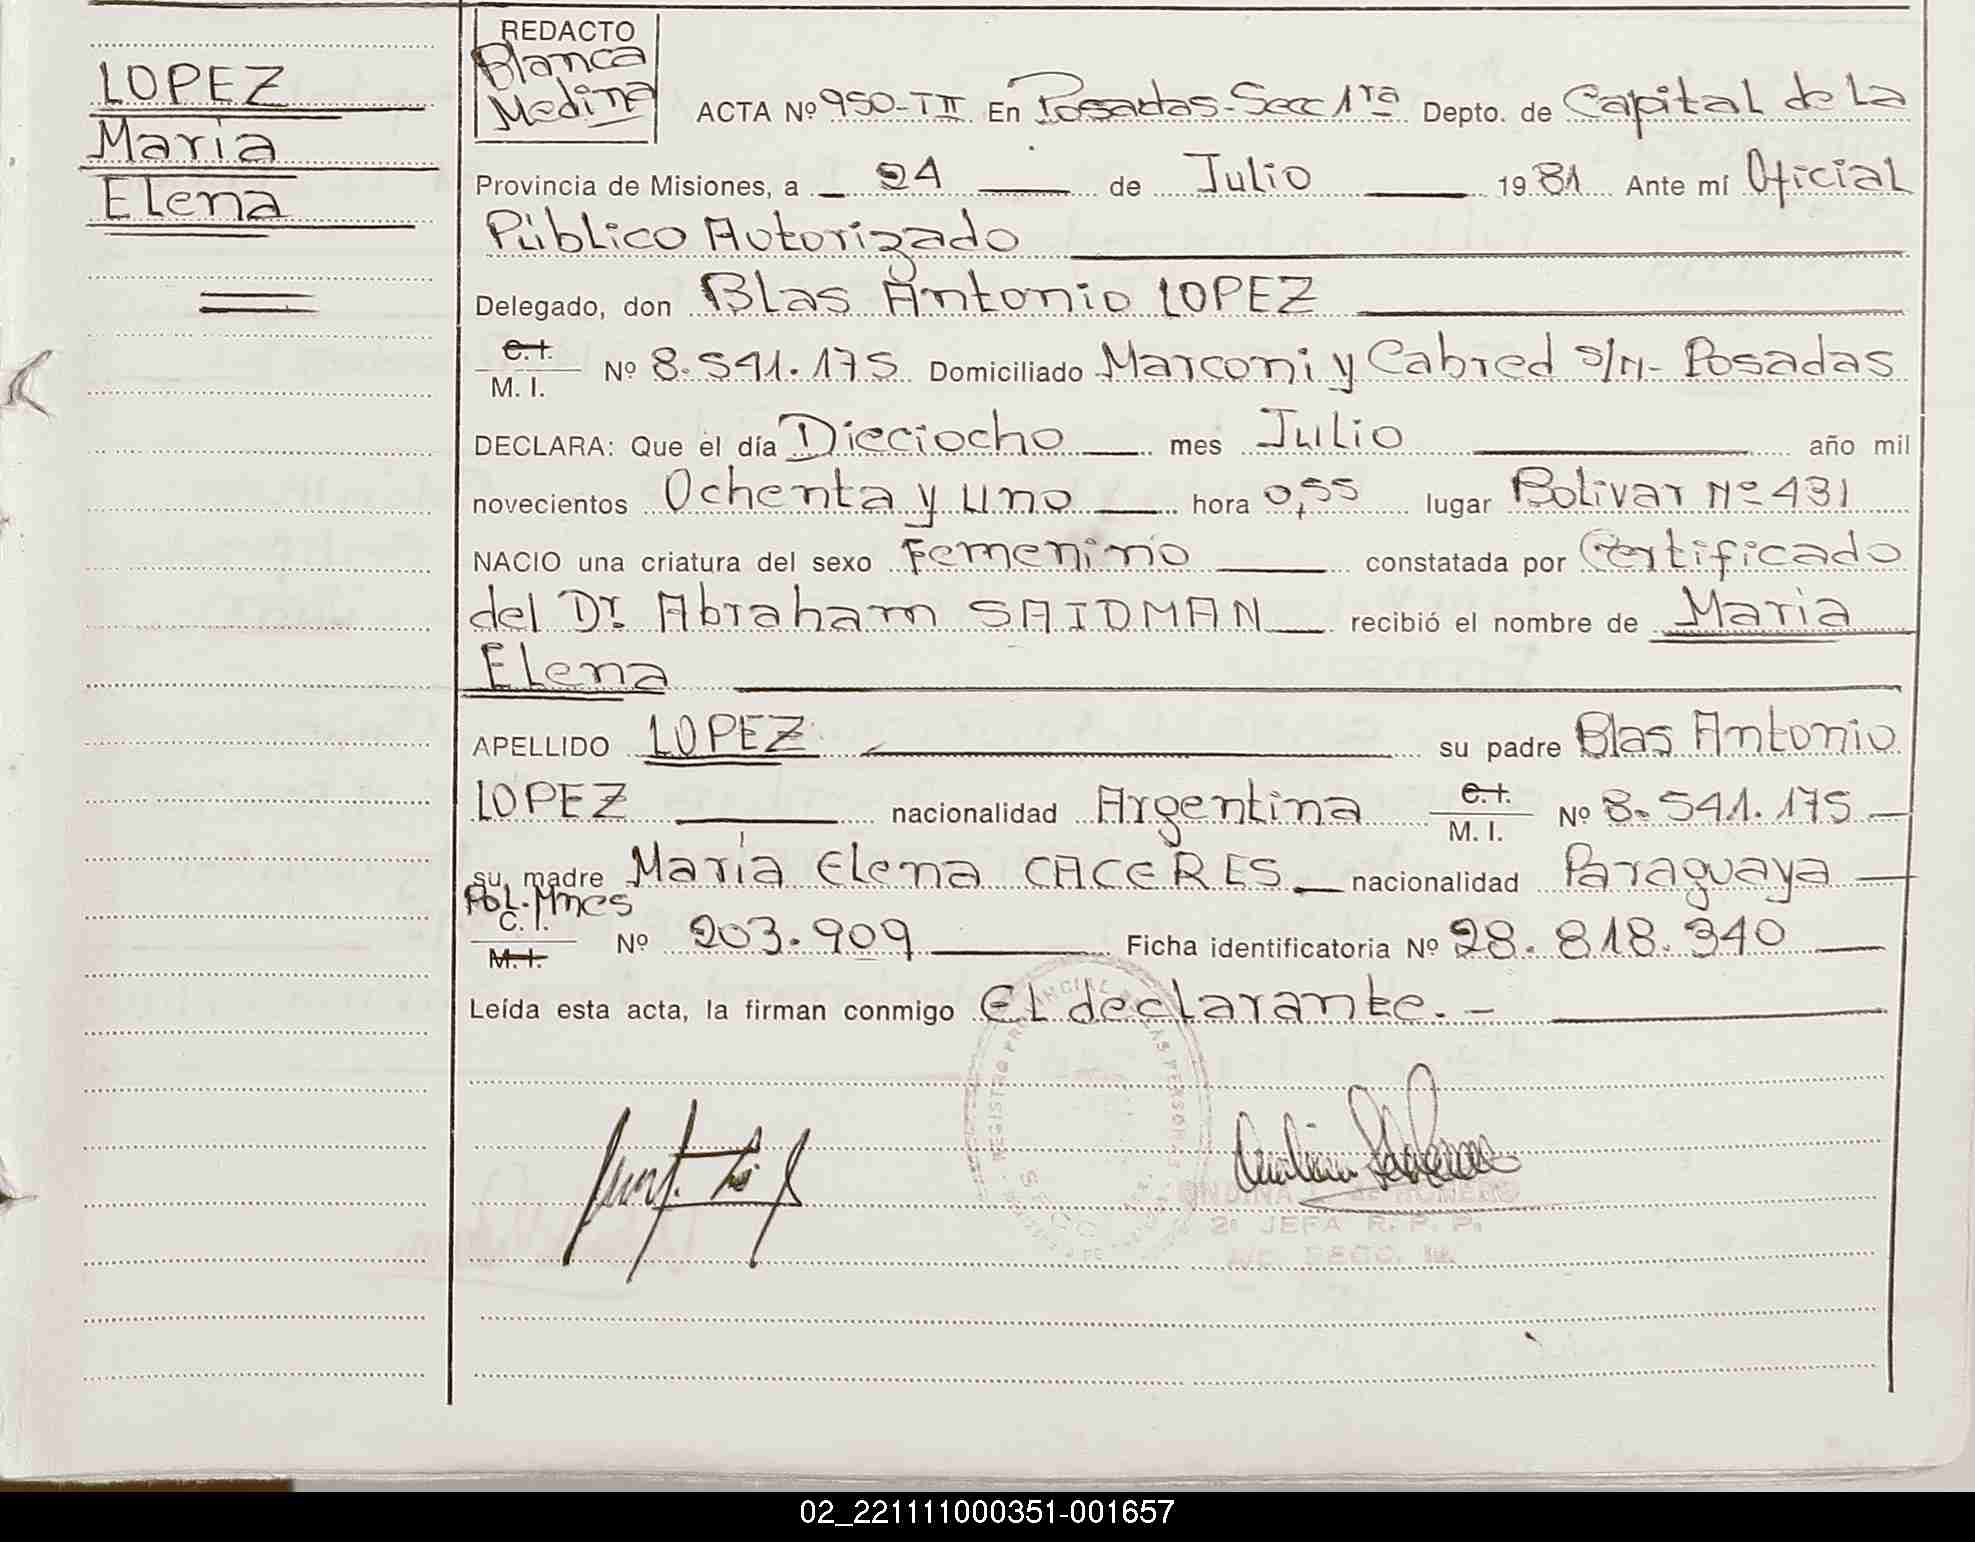 LOPEZ
Maria
Elena
REDACTO
Blanca
Medina
ACTA Nº 950-TII En Posadas-Secc 1ra Depto. de Capital de La
Provincia de Misiones, a 24 de Julio 1981 Ante mí Oficial
Público Autorizado
Delegado, don Blas Antonio LOPEZ
C.I.
M. I. Nº 8.541.175 Domiciliado Marconi y Cabred s/n- Posadas
DECLARA: Que el día Dieciocho mes Julio año mil
novecientos Ochenta y uno hora 0,55 lugar Bolivar Nº 431
NACIO una criatura del sexo Femenino constatada por Certificado
del Dr. Abraham SAIDMAN recibió el nombre de Maria
Elena
APELLIDO LOPEZ su padre Blas Antonio
LOPEZ nacionalidad Argentina C.I. M. I. Nº 8.541.175
su madre María Elena CACERES nacionalidad Paraguaya
Pol. Mnes
C. I.
M.I. Nº 203.909 Ficha identificatoria Nº 28.818.340
Leída esta acta, la firman conmigo El declarante.-
ONDINA DE ROMERO
2ª JEFA R. P. P.
SECC. 1a.
02_221111000351-001657